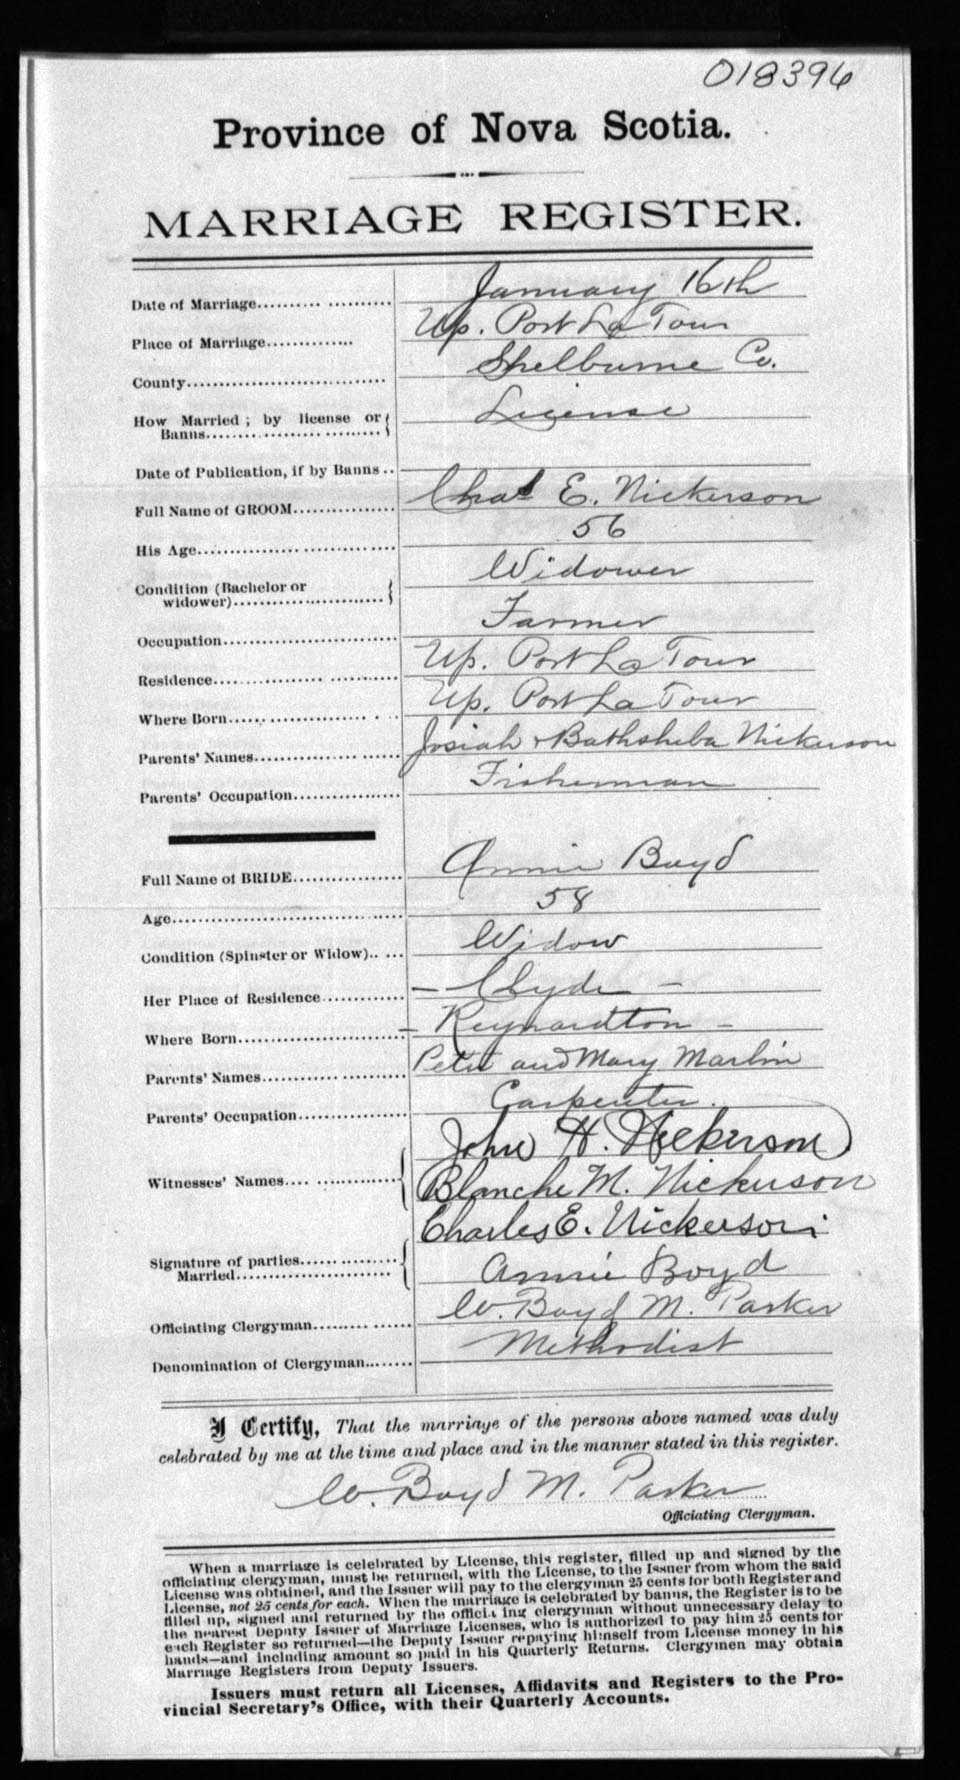 018396
Province of Nova Scotia.
MARRIAGE REGISTER.
Date of Marriage.......... January 16th
Place of Marriage............. Up. Port La Tour
County............................ Shelburne Co.
How Married; by license or Banns.......... License
Date of Publication, if by Banns..
Full Name of GROOM............... Chas E. Nickerson
His Age............................. 56
Condition (Bachelor or widower)............ Widower
Occupation.......................... Farmer
Residence........................... Up. Port La Tour
Where Born......................... Up. Port La Tour
Parents' Names..................... Josiah & Bathsheba Nickerson
Parents' Occupation................ Fisherman
Full Name of BRIDE................. Annie Boyd
Age................................. 58
Condition (Spinster or Widow)..... Widow
Her Place of Residence............. – Clyde –
Where Born........................ – Reynardton –
Parents' Names.................... Peter and Mary Marlin
Parents' Occupation............... Carpenter.
John H. Nickerson
Witnesses' Names.... Blanche M. Nickerson
Charles E. Nickerson
Signature of parties Married................ Annie Boyd
Officiating Clergyman............. W. Boyd M. Parker
Denomination of Clergyman........ Methodist
I Certify, That the marriage of the persons above named was duly
celebrated by me at the time and place and in the manner stated in this register.
W. Boyd M. Parker
Officiating Clergyman.
When a marriage is celebrated by License, this register, filled up and signed by the
officiating clergyman, must be returned, with the License, to the Issuer from whom the said
License was obtained, and the Issuer will pay to the clergyman 25 cents for both Register and
License, not 25 cents for each. When the marriage is celebrated by banns, the Register is to be
filled up, signed and returned by the officiating clergyman without unnecessary delay to
the nearest Deputy Issuer of Marriage Licenses, who is authorized to pay him 25 cents for
each Register so returned—the Deputy Issuer repaying himself from License money in his
hands—and including amount so paid in his Quarterly Returns. Clergymen may obtain
Marriage Registers from Deputy Issuers.
Issuers must return all Licenses, Affidavits and Registers to the Pro-
vincial Secretary's Office, with their Quarterly Accounts.